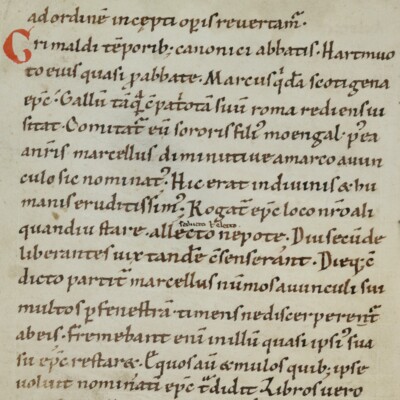 ad ordinē incepti opis revertam̃.
Grimaldi tēporib; canonici abbatis. Hartmuo
to eius quasi ꝓabbate. Marcus qͥdā scotigena
epc̄. Gallū tāqͣ cͦpatͦotam suū roma rediens vi
sitat. Comitat᷑ eū sororis filiꝰ moengal. pꝰea
anr̄is marcellus diminutive amarco avun
culo sic nominatꝰ. Hic erat indivinis & hu
manis eruditissimꝰ. Rogat᷑ epc̄ loco nr̄o ali
quandiu stare. allecto nepote. Diu secū de
liberantes vix tandē cͦsenserant. Dieqͥ cͦ
dicto partit᷑ marcellus nūmos avunculi sui
multos ꝑ fenestrā. timens ne discerperet᷑
ab eis. Fremebant enī in illū. quasi ipsiꝰ sua
su epc̄ restar&. Equos aū & mulos quib; ipse
voluit nominatī epc̄ tͣdidit. Libros vero